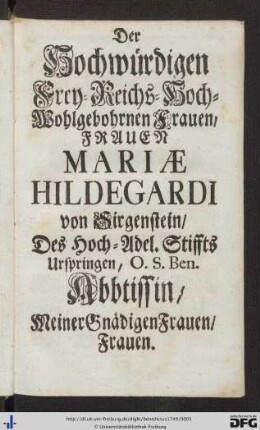 Der
Hochwürdigen
Frey-Reichs-Hoch-
Wohlgebohrnen Frauen/
FRAUEN
MARIÆ
HILDEGARDI
von Sirgenstein/
Des Hoch-Adel. Stiffts
Urspringen, O. S. Ben.
Abbtissin/
Meiner Gnädigen Frauen/
Frauen.
© Universitätsbibliothek Freiburg
DFG